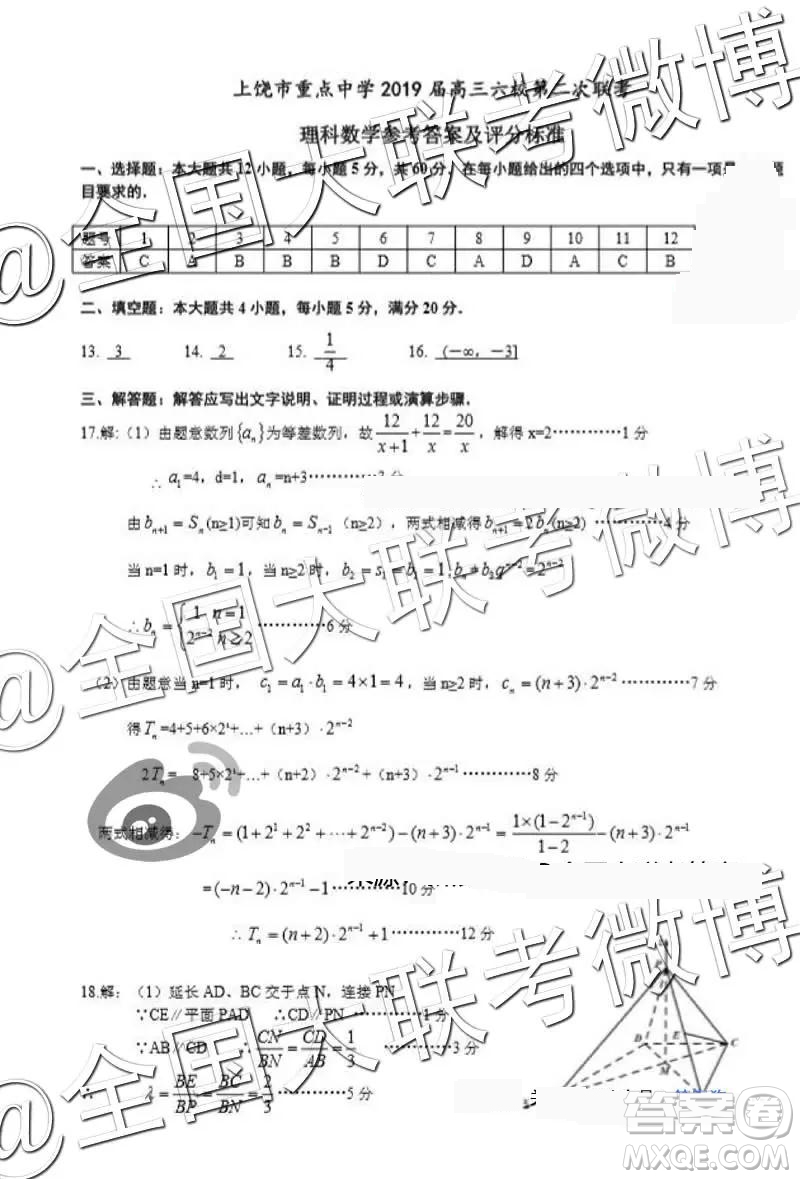 上饶市重点中学2019届高三六校第二次联考
理科数学参考答案及评分标准
一、选择题：本大题共12小题，每小题5分，共60分．在每小题给出的四个选项中，只有一项是 题
目要求的．
题号 1 2 3 4 5 6 7 8 9 10 11 12
答案 C A B B B D C A D A C B
二、填空题：本大题共4小题，每小题5分，满分20分．
13. 3 14. 2 15. 1/4 16. (-∞，-3]
三、解答题：解答应写出文字说明、证明过程或演算步骤．
17.解:（1）由题意数列{a_n}为等差数列，故12/(x+1)+12/x=20/x，解得x=2…………1分
∴a_1=4, d=1, a_n=n+3…………3分
由b_{n+1}=S_n(n≥1)可知b_n=S_{n-1}（n≥2），两式相减得b_{n+1}=2b_n(n≥2)…………4分
当n=1时，b_1=1，当n≥2时，b_2=s_1=b_1=1,b_n=b_2q^{n-2}=2^{n-2}
∴b_n={1 n=1 2^{n-2} n≥2…………6分
（2）由题意当n=1时， c_1=a_1·b_1=4×1=4，当n≥2时，c_n=(n+3)·2^{n-2}…………7分
得T_n=4+5+6×2¹+…+（n+3）·2^{n-2}
2T_n= 8+5×2¹+…+（n+2）·2^{n-2}+（n+3）·2^{n-1}…………8分
两式相减得：-T_n=(1+2^1+2^2+⋯+2^{n-2})-(n+3)·2^{n-1}=1×(1-2^{n-1})/(1-2)-(n+3)·2^{n-1}
=(-n-2)·2^{n-1}-1…………10分
∴T_n=(n+2)·2^{n-1}+1…………12分
18.解：（1）延长AD、BC交于点N，连接PN
∵CE∥平面PAD ∴CD∥PN…………1分
∵AB∥CD ∴CN/BN=CD/AB=1/3…………3分
∴ λ=BE/BP=BC/BN=2/3…………5分
P
D
E
C
M
@全国大联考微博
@全国大联考微博
@全国大联考微博
答案卷
MXQE.COM